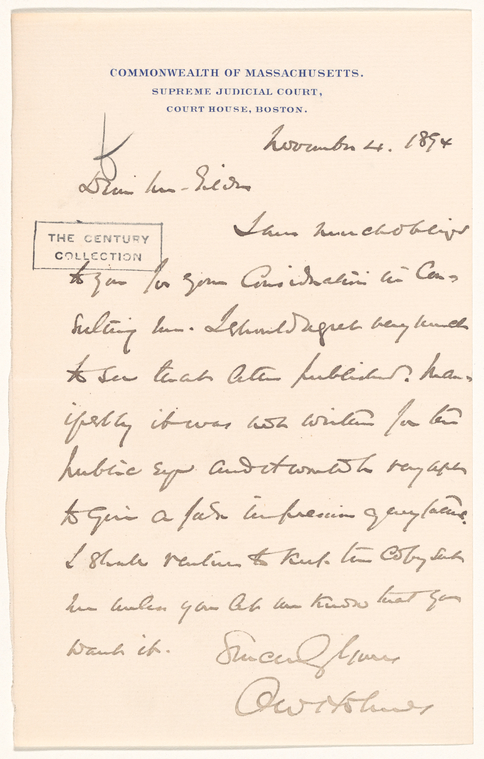 COMMONWEALTH OF MASSACHUSETTS.
SUPREME JUDICIAL COURT,
COURT HOUSE, BOSTON.
November 4. 1894
Dear Mr. Gilder
I am much obliged
THE CENTURY
COLLECTION
to you for your consideration in con-
sulting me. I should regret very much
to see that letter published. Man-
ifestly it was not written for the
public eye and it would be very apt
to give a false impression of my father.
I shall venture to keep the copy sent
me unless you let me know that you
want it.
Sincerely Yours
O W Holmes